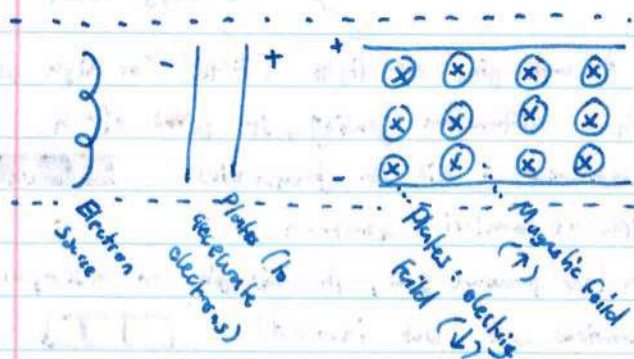 - + +
-
Electron
source
Plates (to
accelerate
electrons)
Plates: electric
Feild (↓)
Magnetic Feild
(↑)